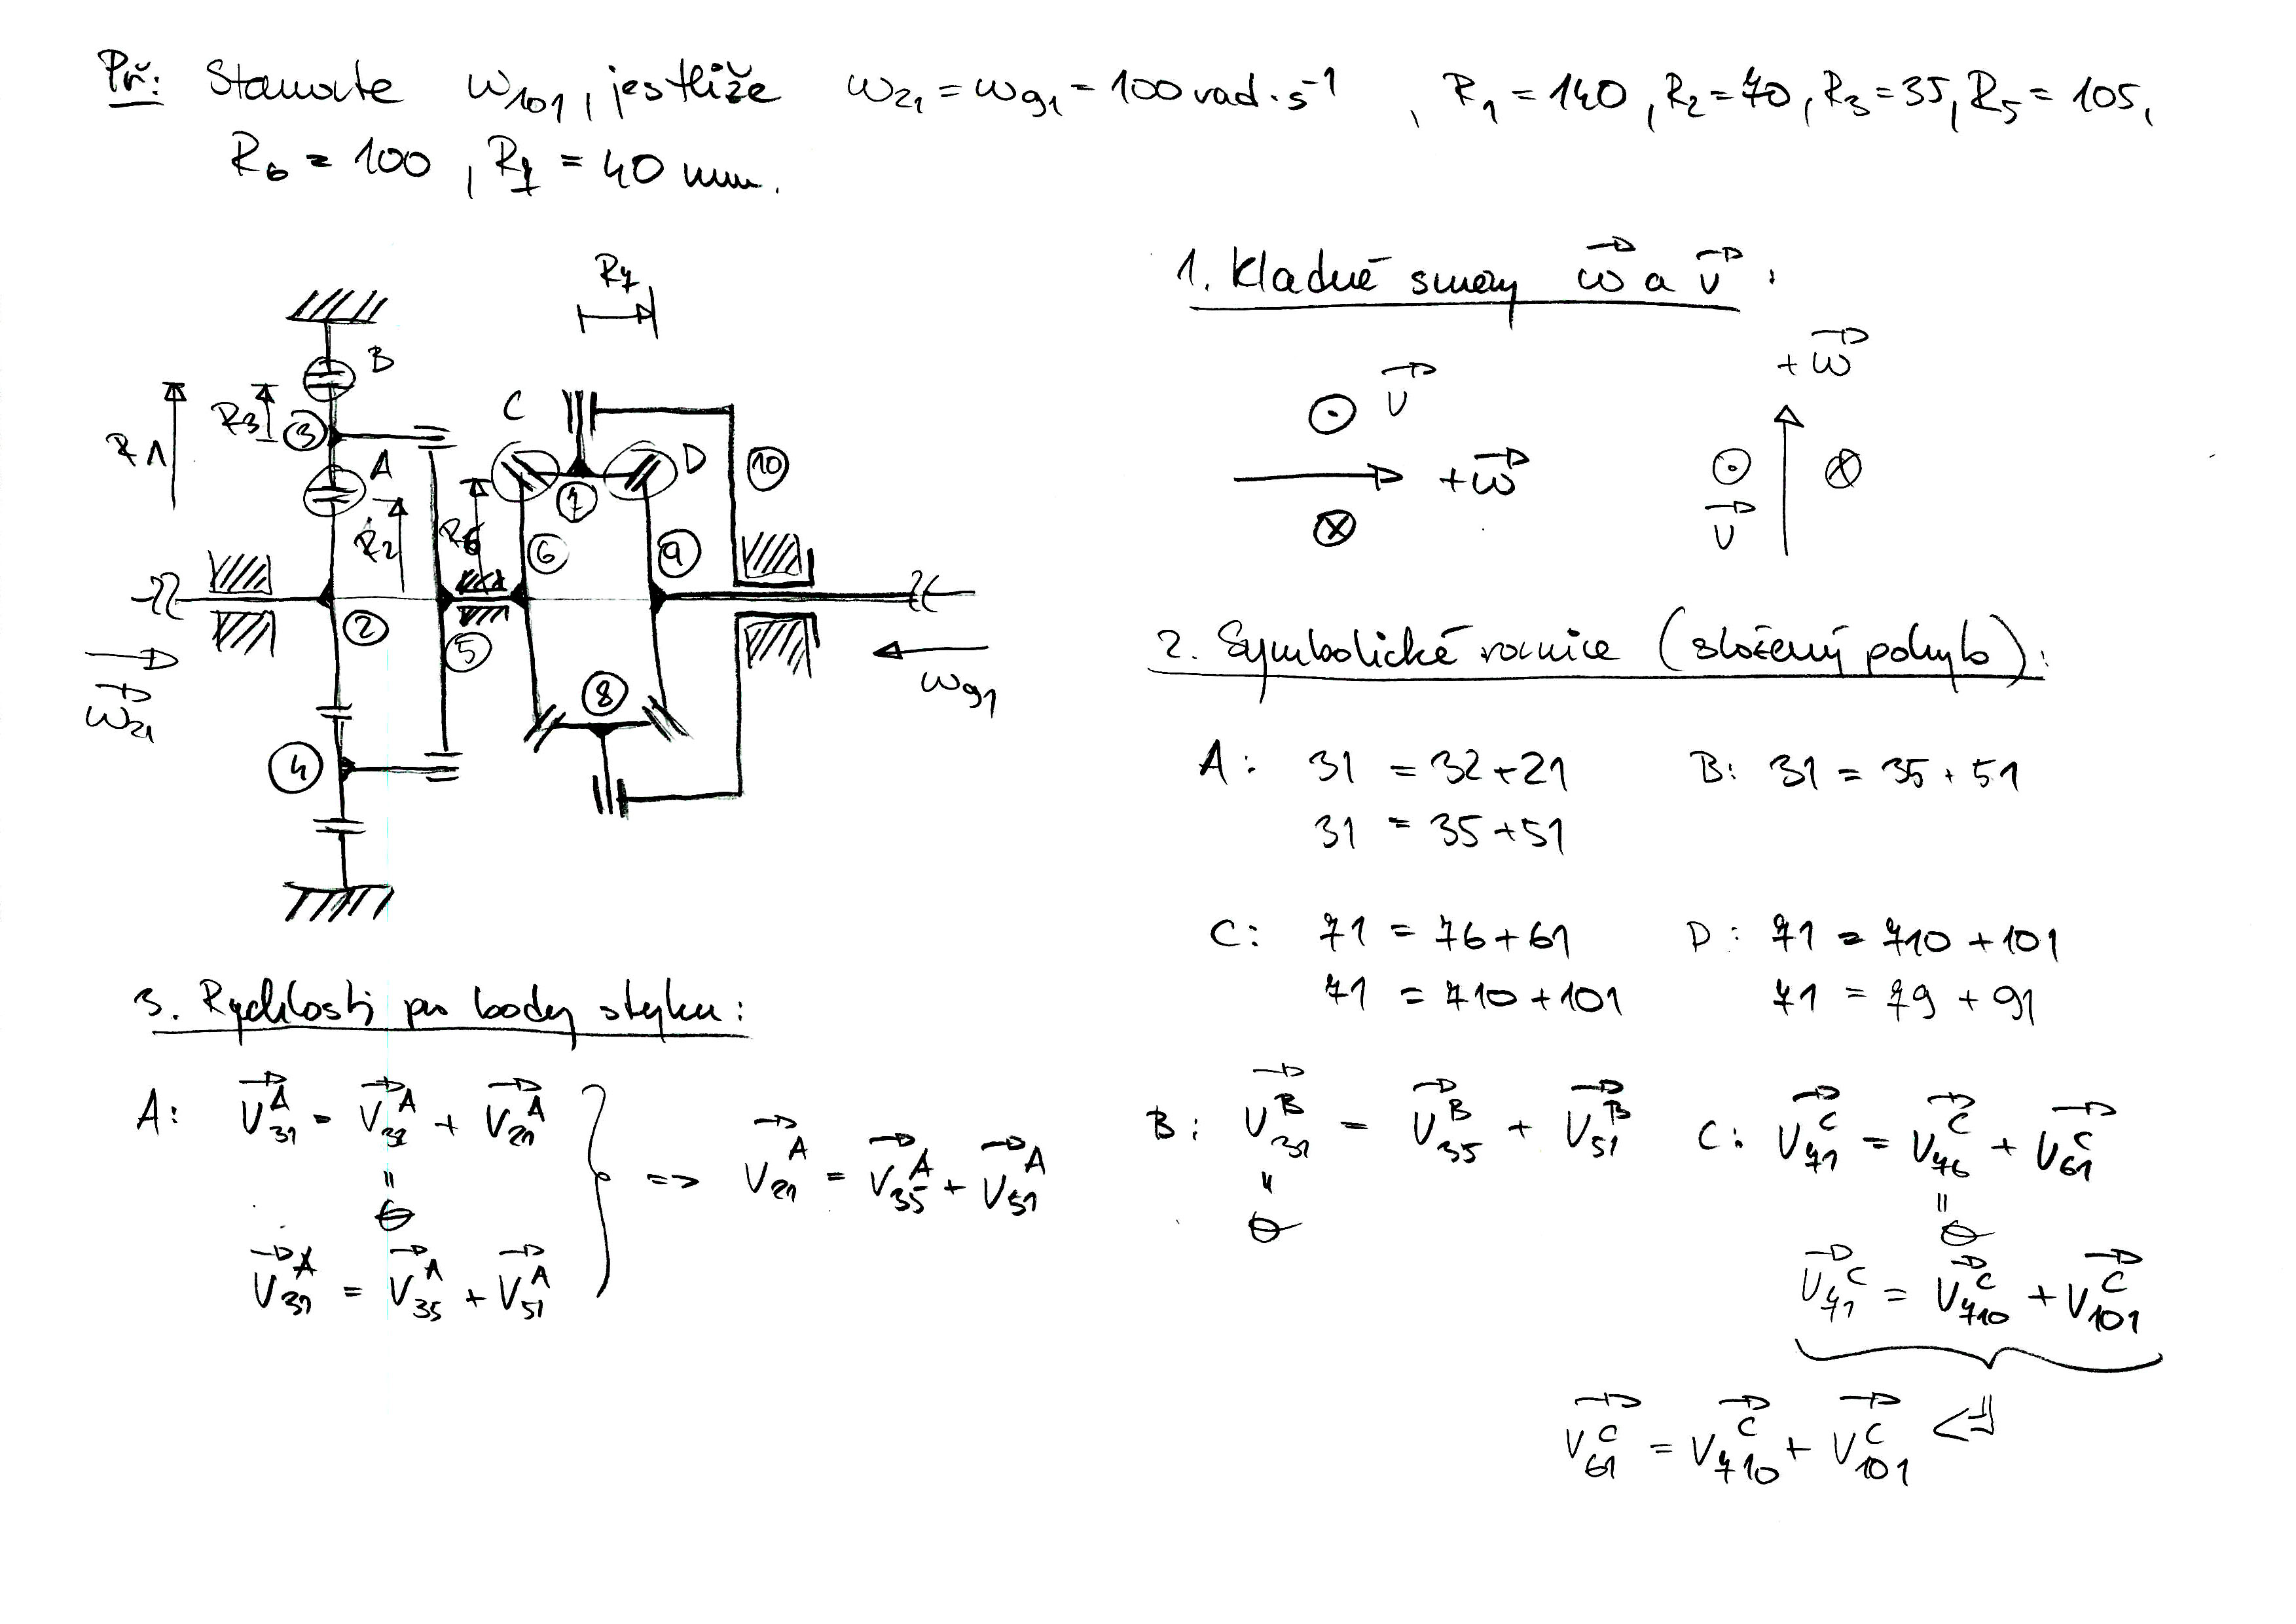 Př: Stanovte ω101, jestliže ω21 = ω91 = 100 rad·s⁻¹, R1 = 140, R2 = 70, R3 = 35, R5 = 105,
R6 = 100, R7 = 40 mm.
R7
B
R1
R3
3
A
R2
C
D
7
10
R6
6
9
2
5
ω21
ω91
8
4
1. Kladné směry ω a v:
v
+ω
+ω
v
2. Symbolické rovnice (složený pohyb):
A: 31 = 32 + 21
31 = 35 + 51
B: 31 = 35 + 51
C: 71 = 76 + 61
71 = 710 + 101
D: 71 = 710 + 101
71 = 79 + 91
3. Rychlosti pro body styku:
A: v31^A = v32^A + v21^A
= 0
v31^A = v35^A + v51^A
=> v21^A = v35^A + v51^A
B: v31^B = v35^B + v51^B
= 0
C: v71^C = v76^C + v61^C
= 0
v71^C = v710^C + v101^C
v61^C = v710^C + v101^C